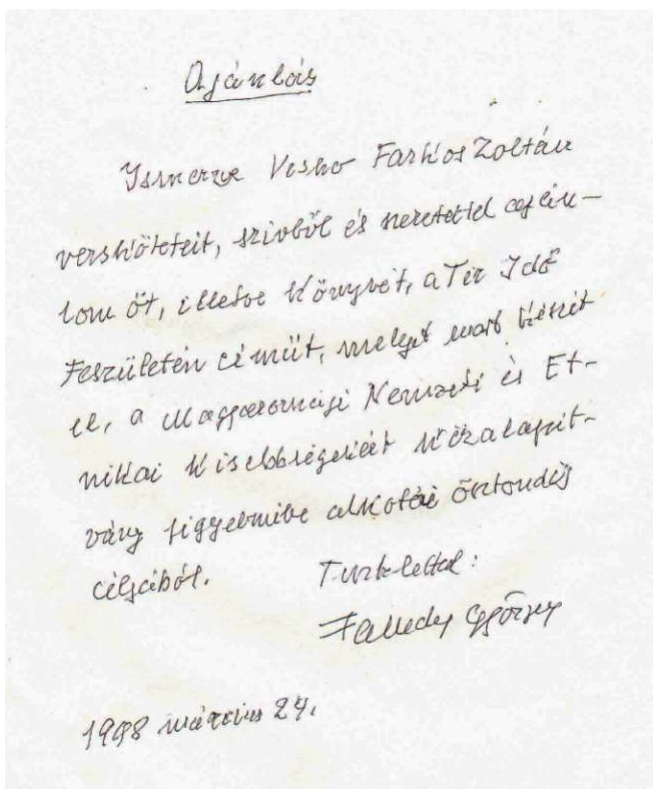 Ajánlás
Ismerve Vesho Farkos Zoltán
versköteteit, szivből és szeretettel aján-
lom őt, illetve könyvét, a Tér Idő
Feszületén cimüt, melyet most készit
el, a Magyarországi Nemzeti és Et-
nikai Kisebbségekért Közalapit-
vány figyelmibe alkotói ösztöndij
céljából.
Tisztelettel:
Faludy György
1998 március 24.